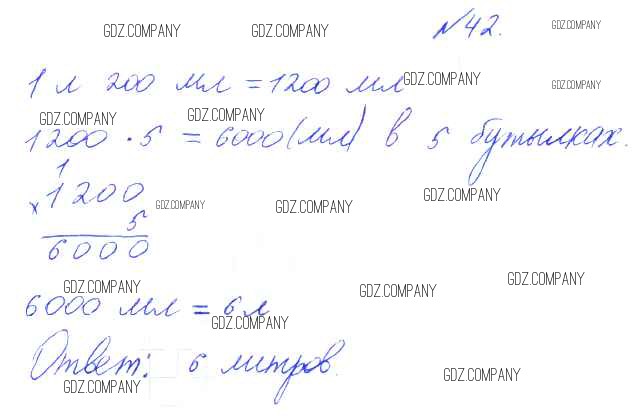 GDZ.COMPANY GDZ.COMPANY №42. GDZ.COMPANY
1 л 200 мл = 1200 мл GDZ.COMPANY GDZ.COMPANY
GDZ.COMPANY GDZ.COMPANY
1200 · 5 = 6000 (мл) в 5 бутылках.
1
× 1200 GDZ.COMPANY GDZ.COMPANY GDZ.COMPANY
5
6000
GDZ.COMPANY GDZ.COMPANY GDZ.COMPANY
6000 мл = 6 л
GDZ.COMPANY
Ответ: 6 литров.
GDZ.COMPANY GDZ.COMPANY